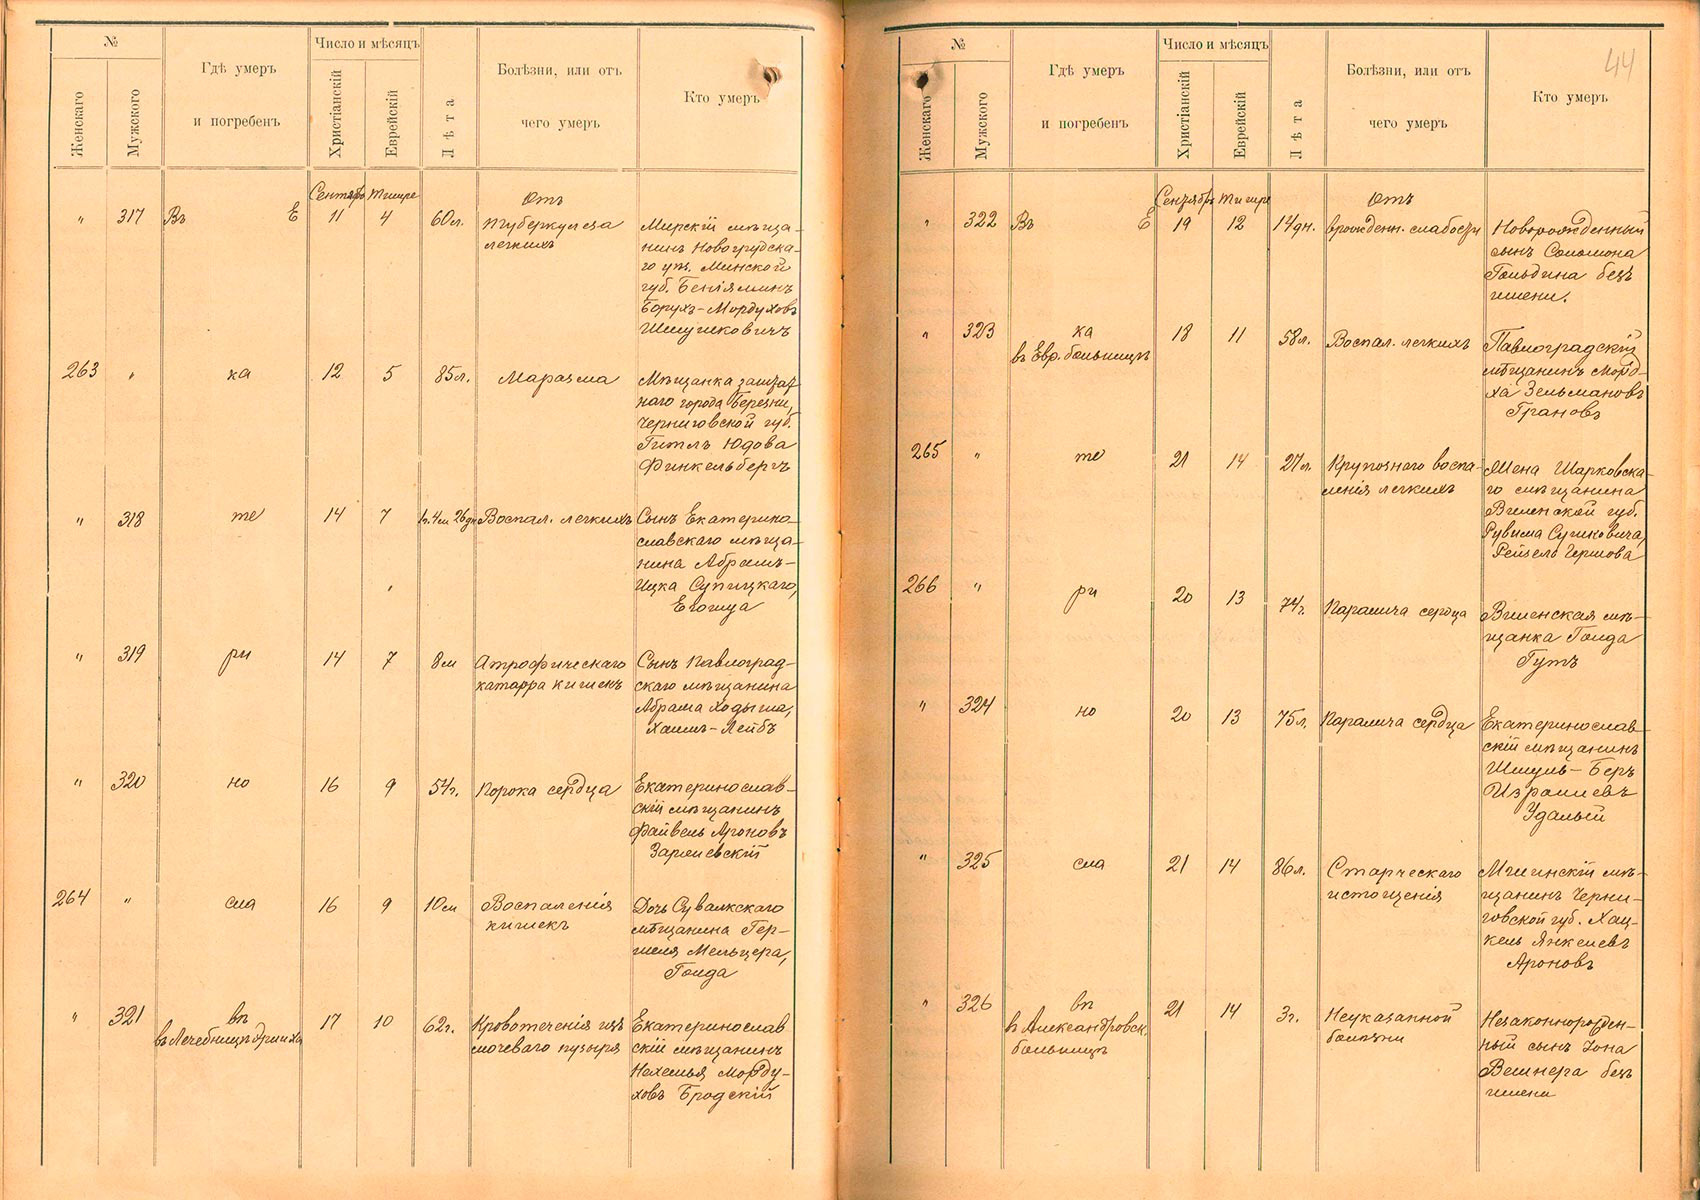 №
Женскаго
Мужского
Гдѣ умеръ
и погребенъ
Число и мѣсяцъ
Христіанскій
Еврейскій
Лѣта
Болѣзни, или отъ
чего умеръ
Кто умеръ
Сентябрь Тишре
Отъ
" 317 Въ Е 11 4 60 л. туберкулеза
легкихъ
Мирскій мѣща-
нинъ Новогрудска-
го уѣз. Минской
губ. Беніяминъ
Борухъ-Мордуховъ
Шмушковичъ
263 " ка 12 5 85 л. Маразма
Мѣщанка заштат-
наго города Березни,
Черниговской губ.
Гитлъ Юдова
Финкельбергъ
" 318 те 14 7 1 г. 4 м 26 дн Воспал. легкихъ
Сынъ Екатерино-
славскаго мѣща-
нина Абрамъ-
Ицка Супицкаго,
" 319 ри 14 7 8 м Атрофическаго
катарра кишекъ
Сынъ Павлоград-
скаго мѣщанина
Абрама
Хаимъ-Лейбъ
" 320 но 16 9 54 г. Порока сердца
Екатеринослав-
скій мѣщанинъ
Файвель Ароновъ
264 " сла 16 9 10 м Воспаленія
кишекъ
Дочь Сувалкскаго
мѣщанина Гер-
шеля Мельцера,
Голда
" 321 вѣ
въ Лечебницѣ
17 10 62 г. Кровотеченія изъ
мочеваго пузыря
Екатеринослав
скій мѣщанинъ
Нехемья Морду-
ховъ Бродскій
44
№
Женскаго
Мужского
Гдѣ умеръ
и погребенъ
Число и мѣсяцъ
Христіанскій
Еврейскій
Лѣта
Болѣзни, или отъ
чего умеръ
Кто умеръ
Сентябрь Тишре
Отъ
" 322 Въ Е 19 12 14 дн. врожденн. слабости
Новорожденный
сынъ Соломона
Гольдина безъ
имени.
" 323 ка
въ Евр. больницѣ
18 11 58 л. Воспал. легкихъ
Павлоградскій
мѣщанинъ Морд-
ха Зельмановъ
Грановъ
265 " те 21 14 27 л. Крупознаго воспа-
ленія легкихъ
Жена Шарковска-
го мѣщанина
Виленской губ.
Рувима Сушковича,
Рейзелъ Гершова
266 " ри 20 13 74 г. Паралича сердца
Виленская мѣ-
щанка Голда
Гутъ
" 324 но 20 13 75 л. Паралича сердца
Екатеринослав-
скій мѣщанинъ
Шмуль-Беръ
Израилевъ
Удалый
" 325 сла 21 14 86 л. Старческаго
истощенія
Мглинскій мѣ-
щанинъ Черни-
говской губ. Хац-
кель Янкелевъ
Ароновъ
" 326 вѣ
в Александровск.
больницѣ
21 14 3 г. Неуказанной
болѣзни
Незаконнорожден-
ный сынъ Іона
Вешнера безъ
имени